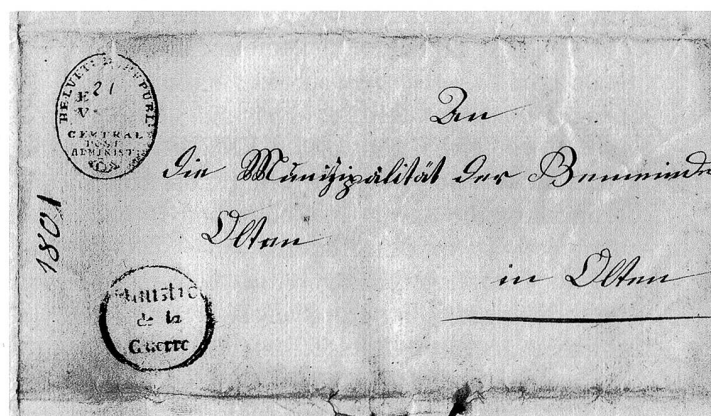 HELVET: REPUBL:
21
E
V
CENTRAL
POST
ADMINIST:
1801
An
die Munizipalität der Gemeinde
Olten
in Olten
Ministre
de la
Guerre